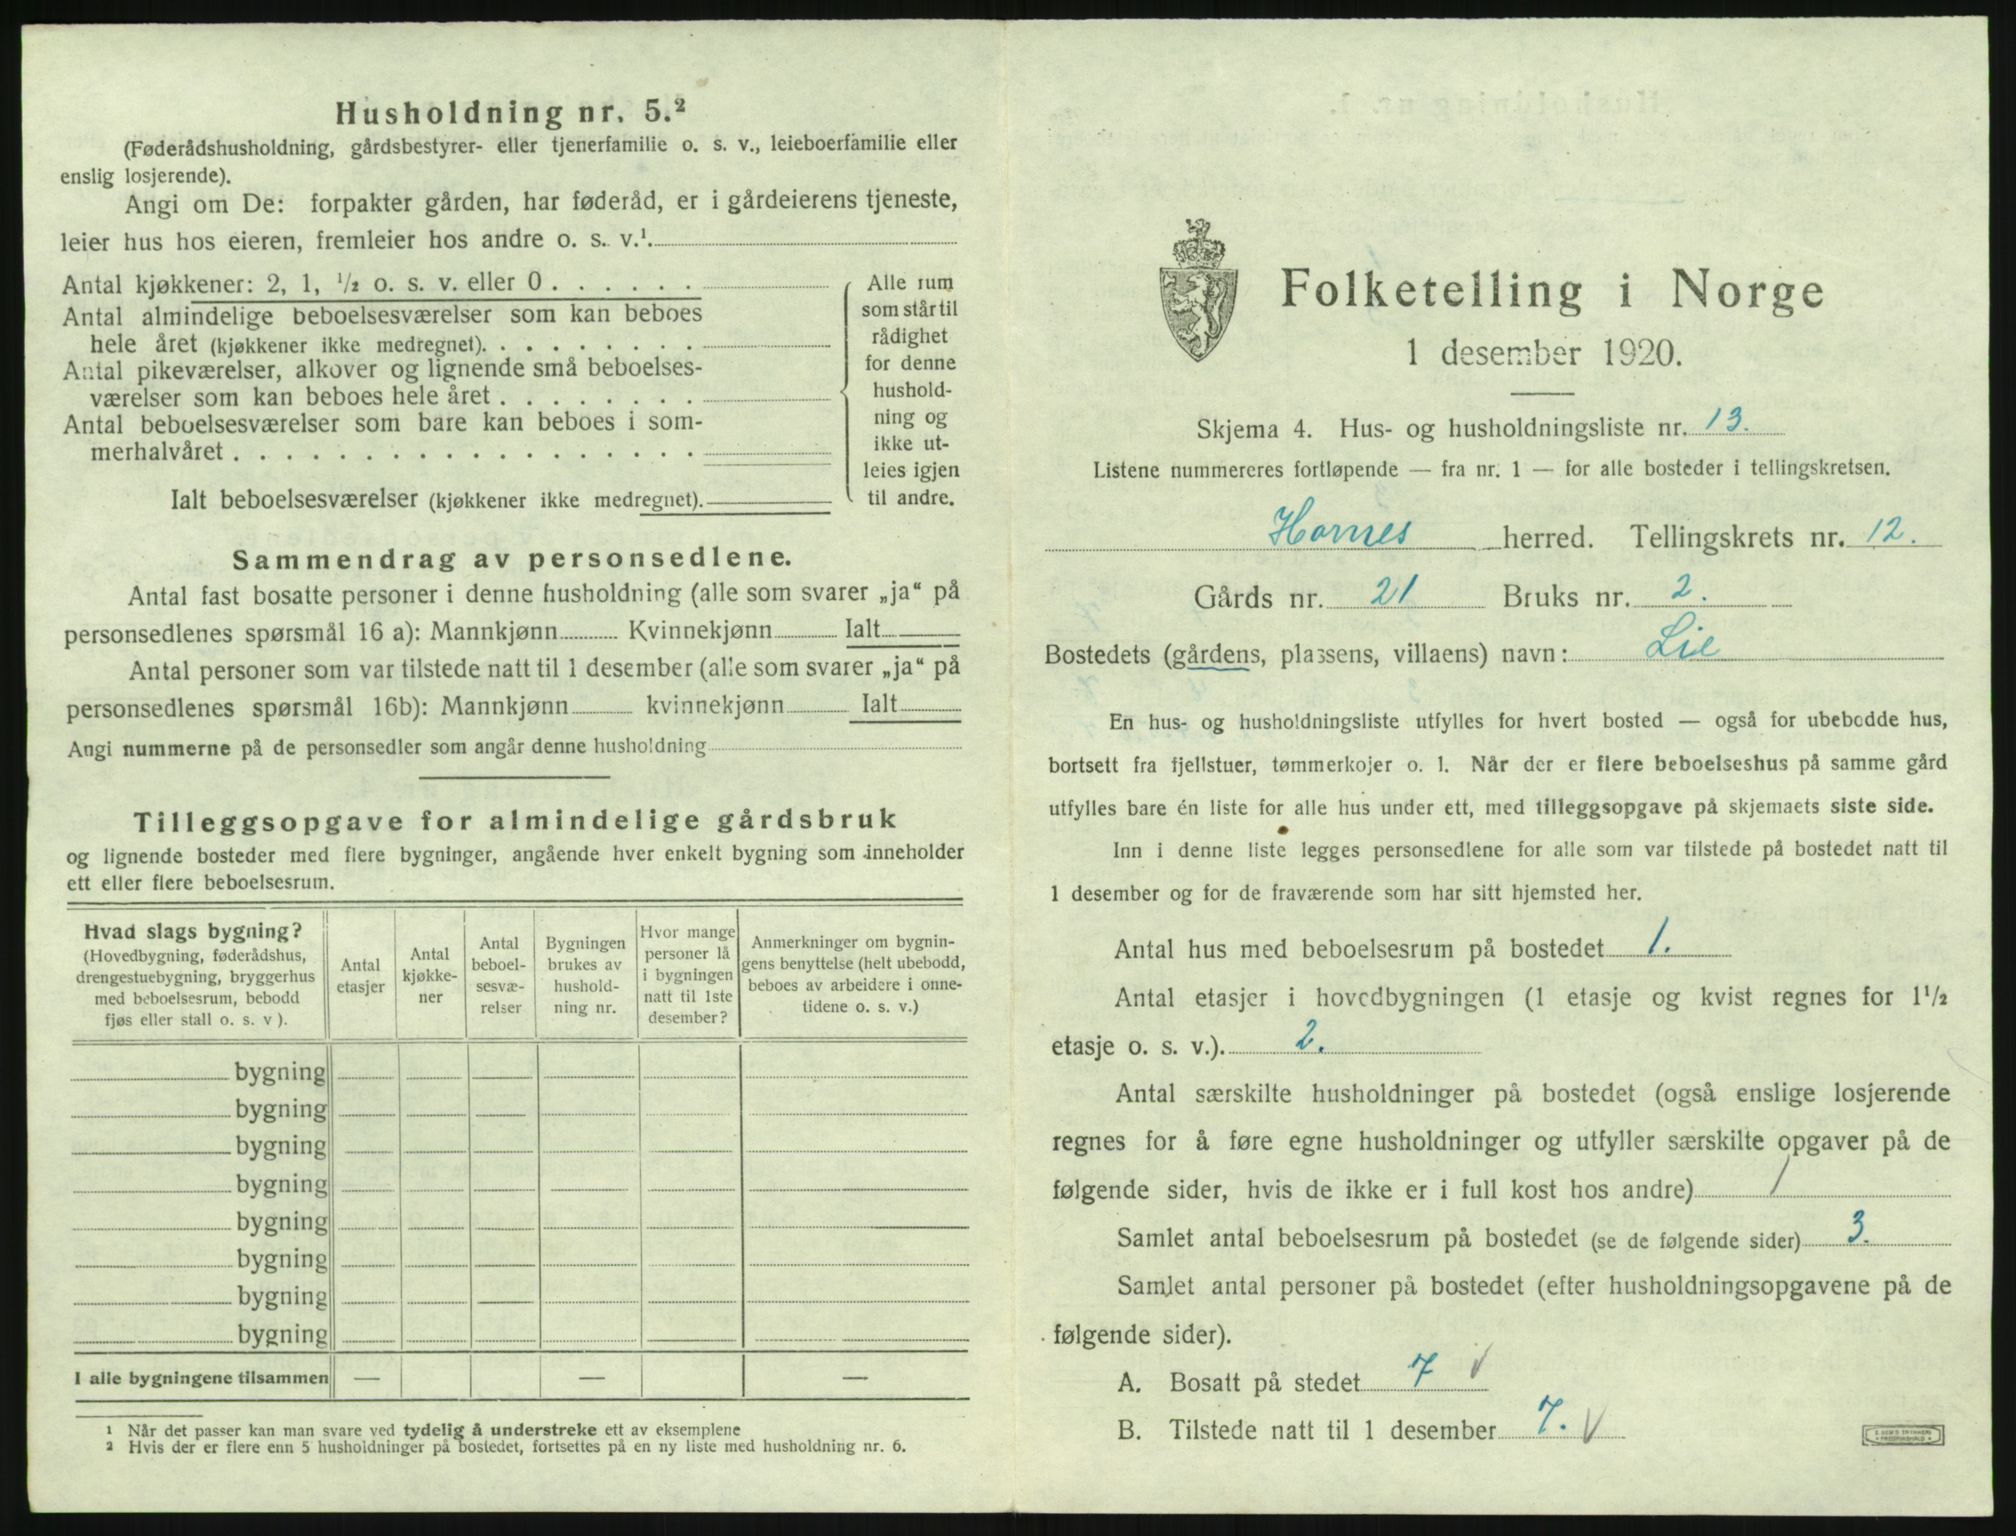 Husholdning nr. 5.²
(Føderådshusholdning, gårdsbestyrer- eller tjenerfamilie o. s. v., leieboerfamilie eller
enslig losjerende).
Angi om De: forpakter gården, har føderåd, er i gårdeierens tjeneste,
leier hus hos eieren, fremleier hos andre o. s. v.¹.
Antal kjøkkener: 2, 1, ½ o. s. v. eller 0 . . . . . .
Antal almindelige beboelsesværelser som kan beboes
hele året (kjøkkener ikke medregnet). . . . . . . . .
Antal pikeværelser, alkover og lignende små beboelses-
værelser som kan beboes hele året . . . . . . . .
Antal beboelsesværelser som bare kan beboes i som-
merhalvåret . . . . . . . . . . . . . . . . . .
Ialt beboelsesværelser (kjøkkener ikke medregnet).
Alle rum
som står til
rådighet
for denne
hushold-
ning og
ikke ut-
leies igjen
til andre.
Sammendrag av personsedlene.
Antal fast bosatte personer i denne husholdning (alle som svarer „ja“ på
personsedlenes spørsmål 16 a): Mannkjønn Kvinnekjønn Ialt
Antal personer som var tilstede natt til 1 desember (alle som svarer „ja“ på
personsedlenes spørsmål 16b): Mannkjønn kvinnekjønn Ialt
Angi nummerne på de personsedler som angår denne husholdning
Tilleggsopgave for almindelige gårdsbruk
og lignende bosteder med flere bygninger, angående hver enkelt bygning som inneholder
ett eller flere beboelsesrum.
Hvad slags bygning?
(Hovedbygning, føderådshus,
drengestuebygning, bryggerhus
med beboelsesrum, bebodd
fjøs eller stall o. s. v ).
Antal
etasjer
Antal
kjøkke-
ner
Antal
beboel-
sesvæ-
relser
Bygningen
brukes av
hushold-
ning nr.
Hvor mange
personer lå
i bygningen
natt til 1ste
desember?
Anmerkninger om bygnin-
gens benyttelse (helt ubebodd,
beboes av arbeidere i onne-
tidene o. s. v.)
bygning
bygning
bygning
bygning
bygning
bygning
bygning
bygning
I alle bygningene tilsammen — — —
¹ Når det passer kan man svare ved tydelig å understreke ett av eksemplene
² Hvis der er flere enn 5 husholdninger på bostedet, fortsettes på en ny liste med husholdning nr. 6.
Folketelling i Norge
1 desember 1920.
Skjema 4. Hus- og husholdningsliste nr. 13.
Listene nummereres fortløpende — fra nr. 1 — for alle bosteder i tellingskretsen.
Hornes herred. Tellingskrets nr. 12.
Gårds nr. 21 Bruks nr. 2.
Bostedets (gårdens, plassens, villaens) navn: Lie
En hus- og husholdningsliste utfylles for hvert bosted — også for ubebodde hus,
bortsett fra fjellstuer, tømmerkojer o. l. Når der er flere beboelseshus på samme gård
utfylles bare én liste for alle hus under ett, med tilleggsopgave på skjemaets siste side.
Inn i denne liste legges personsedlene for alle som var tilstede på bostedet natt til
1 desember og for de fraværende som har sitt hjemsted her.
Antal hus med beboelsesrum på bostedet 1.
Antal etasjer i hovedbygningen (1 etasje og kvist regnes for 1½
etasje o. s. v.). 2.
Antal særskilte husholdninger på bostedet (også enslige losjerende
regnes for å føre egne husholdninger og utfyller særskilte opgaver på de
følgende sider, hvis de ikke er i full kost hos andre) 1
Samlet antal beboelsesrum på bostedet (se de følgende sider) 3.
Samlet antal personer på bostedet (efter husholdningsopgavene på de
følgende sider).
A. Bosatt på stedet 7 √
B. Tilstede natt til 1 desember 7. √